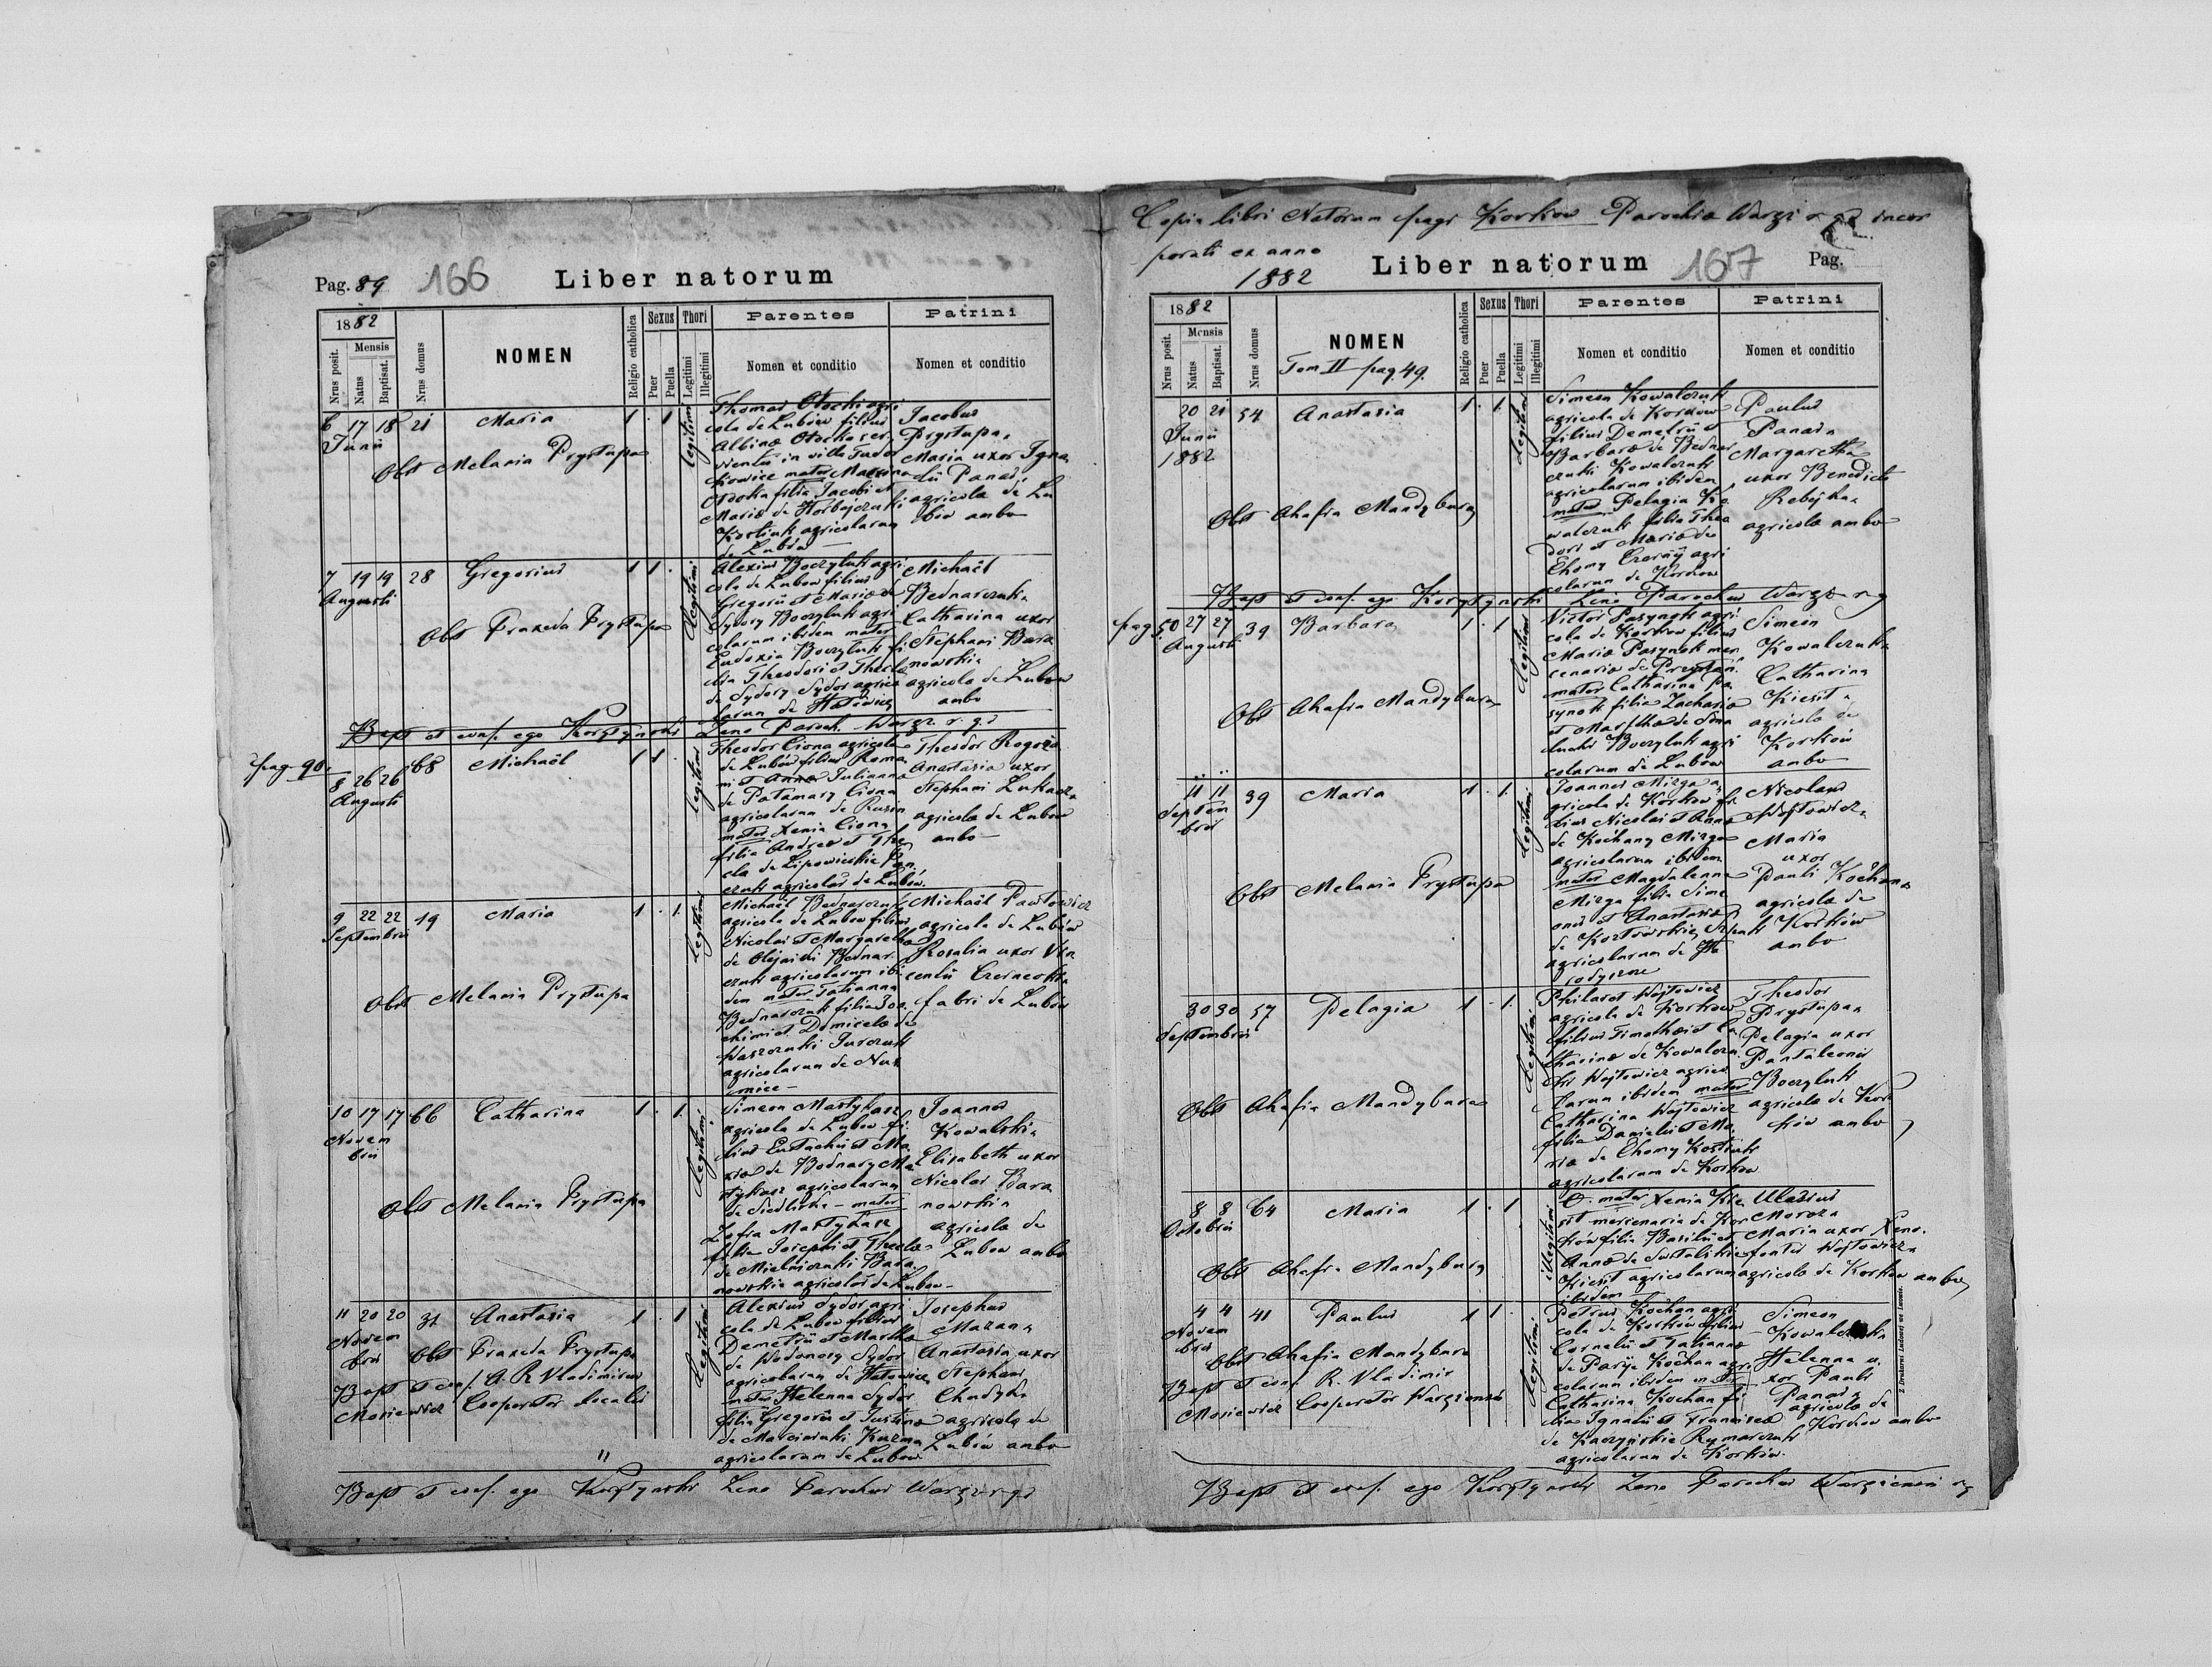 Pag. 89 166 Liber natorum
1882
Nrus posit.
Mensis
Natus
Baptisat.
Nrus domus
NOMEN
Religio catholica
Sexus
Puer
Puella
Thori
Legitimi
Illegitimi
Parentes
Nomen et conditio
Patrini
Nomen et conditio
6 17 18 21 Maria 1 . 1
Junii
Obst Melania Prystupa
legitimi
Thomas Otocki agri
cola de Lubów filius
Albinæ Otocka ser
vientis in villa Tudor
kowice mater Marina
Otocka filia Jacobi et
Mariæ de Horbajczuki
Kostiuk agricolarum
de Lubów
Jacobus
Prystupa
Maria uxor Igna
tii Panas
agricolæ de Lu
bów ambo
7 19 19 28 Gregorius 1 1 .
Augusti
Obst Praxeda Prystupa
legitimi
Alexius Boczyluk agri
cola de Lubow filius
Gregorii et Mariæ de
Sydory Boczyluk agri
colarum ibidem mater
Eudoxia Boczyluk fi
lia Theodori et Theclæ
de Sydory Sydor agrico
larum de
Michaël
Bednarczuk
Catharina uxor
Stephani Bara
nowski
agricolæ de Lubow
ambo
Bapt et conf. ego Korytynski Zeno Paroch. Waręz r. g.
pag 90.
8 26 26 68 Michaël 1 1
Augusti
legitimi
Theodor Ciona agricola
de Lubów filius Roma
ni et Annæ Julianna
de Patamary Ciona
agricolarum de
mater Xenia Ciona
filia Andreæ et The
clæ de Lipowieckie
czuk agricolas de Lubów.
Theodor Rogoza
Anastasia uxor
Stephani Lukasza
agricolæ de Lubow
ambo
9 22 22 19 Maria 1 . 1
Septembris
Obst Melania Prystupa
legitimi
Michaël Bednarczuk
agricola de Lubow filius
Nicolai et Margarethæ
de Olejniki Bednar
czuk agricolarum ibi
dem mater Tatianna
Bednarczuk filia Joa
chimi et Domicelæ de
Waszczuki Jurczuk
agricolarum de Nus
mice
Michaël Pawłowicz
agricola de Lubów
Rosalia uxor Vin
centii
fabri de Lubów
10 17 17 66 Catharina 1 . 1
Novem
bris
Obst Melania Prystupa
legitimi
Simeon Martykasz
agricola de Lubow fi
lius Eustachii et Ma
riæ de Bodnary Ma
tykasz agricolarum
de Siedliska mater
Zofia Martykasz
filia Josephi et Theclæ
de Mielniczuki Bara
nowskie agricolas de Lubow
Joannes
Kowalski
Elisabeth uxor
Nicolai Bara
nowski
agricolæ de
Lubow ambo
11 20 20 31 Anastasia 1 . 1
Novem
bris
Obst Praxeda Prystupa
Bapt et conf. A. R. Vladimirus
Mosiewicz Cooperator localis
legitimi
Alexius Sydor agri
cola de Lubow filius
Demetrii et Marthæ
de Wodonosy Sydor
agricolarum de
mater Helenna Sydor
filia Gregorii et Justinæ
de Marciniuki Kuzma
agricolarum de Lubow
Josephus
Mazan
Anastasia uxor
Stephani
Chudyk
agricolæ de
Lubów ambo
Bapt et conf. ego Korytynski Zeno Parochus Waręz r. g.
Copia libri Natorum pagi Korkow Parochiæ Waręz r. g. incor
porati ex anno
1882
Liber natorum 167 Pag.
1882
Nrus posit.
Mensis
Natus
Baptisat.
Nrus domus
NOMEN
Tom II pag. 49.
Religio catholica
Sexus
Puer
Puella
Thori
Legitimi
Illegitimi
Parentes
Nomen et conditio
Patrini
Nomen et conditio
20 21 54 Anastasia 1 . 1
Junii
1882
Obst Ahafia Mandybura
legitimi
Simeon Kowalczuk
agricola de Korkow
filius Demetrii et
Barbaræ de Bednar
czuki Kowalczuk
agricolarum ibidem
mater Pelagia Ko
walczuk filia Theo
dori et Mariæ de
Chomy Czerny agri
colarum de Korkow
Paulus
Panas
Margaretha
uxor Benedicti
agricolæ ambo
Bapt et conf. ego Korytynski Zeno Parochus Waręz r. g.
pag 50 27 27 39 Barbara 1 . 1
Augusti
Obst Ahafia Mandybura
legitimi
Victor Pasynok agri
cola de Korkow filius
Mariæ Pasynok mer
cenariæ de
mater Catharina Pa
synok filia Zachariæ
et Marthæ de
Boczyluk agri
colarum de Lubów
Simeon
Kowalczuk
Catharina
agricolæ de
Korków
ambo
11 11 39 Maria 1 . 1
Septem
bris
Obst Melania Prystupa
legitimi
Joannes Mizga a
gricola de Korkow fi
lius Nicolai et Annæ
de Kochany Mizga
agricolarum ibidem
mater Magdalenna
Mizga filia Sime
onis et Anastasiæ
de Kozłowskie
agricolarum de
Nicolaus
Wojtowicz
Maria
uxor
Pauli Kochan
agricolæ de
Korków
ambo
30 30 57 Pelagia 1 . 1
Septembris
Obst Ahafia Mandybura
legitimi
Philaret Wojtowicz
agricola de Korkow
filius Timothei et Ca
tharinæ de Kowalczu
ki Wojtowicz agrico
larum ibidem mater
Catharina Wojtowicz
filia Danielis et Ma
riæ de Chomy Kostiuk
agricolarum de Korkow
Theodor
Prystupa
Pelagia uxor
Pantaleonis
Boczyluk
agricolæ de Kor
ków ambo
8 8 64 Maria 1 . 1
Octobris
Obst Ahafia Mandybura
illegitimi
mater Xenia
mercenaria de Kor
ków filia Basilii et
Annæ de
agricolarum
ibidem
Moroza
Maria uxor Xeno
fontis Wojtowicz
agricolæ de Korkow ambo
4 4 41 Paulus 1 1 .
Novem
bris
Obst Ahafia Mandybura
Bapt et conf. R. Vladimir
Mosiewicz Cooperator Waręzensis
legitimi
Petrus Kochan agri
cola de Korków filius
Cornelii et Tatiannæ
de Kochan agri
colarum ibidem mater
Catharina Kochan fi
lia Ignatii et Franciscæ
de Kaczyńskie Rymarczuk
agricolarum de Korków
Simeon
Helenna u
xor Pauli
Panas
agricolæ de
Korkow ambo
Z Drukarni Ludowej we Lwowie.
Bapt et conf. ego Korytynski Zeno Parochus Waręzensis r. g.